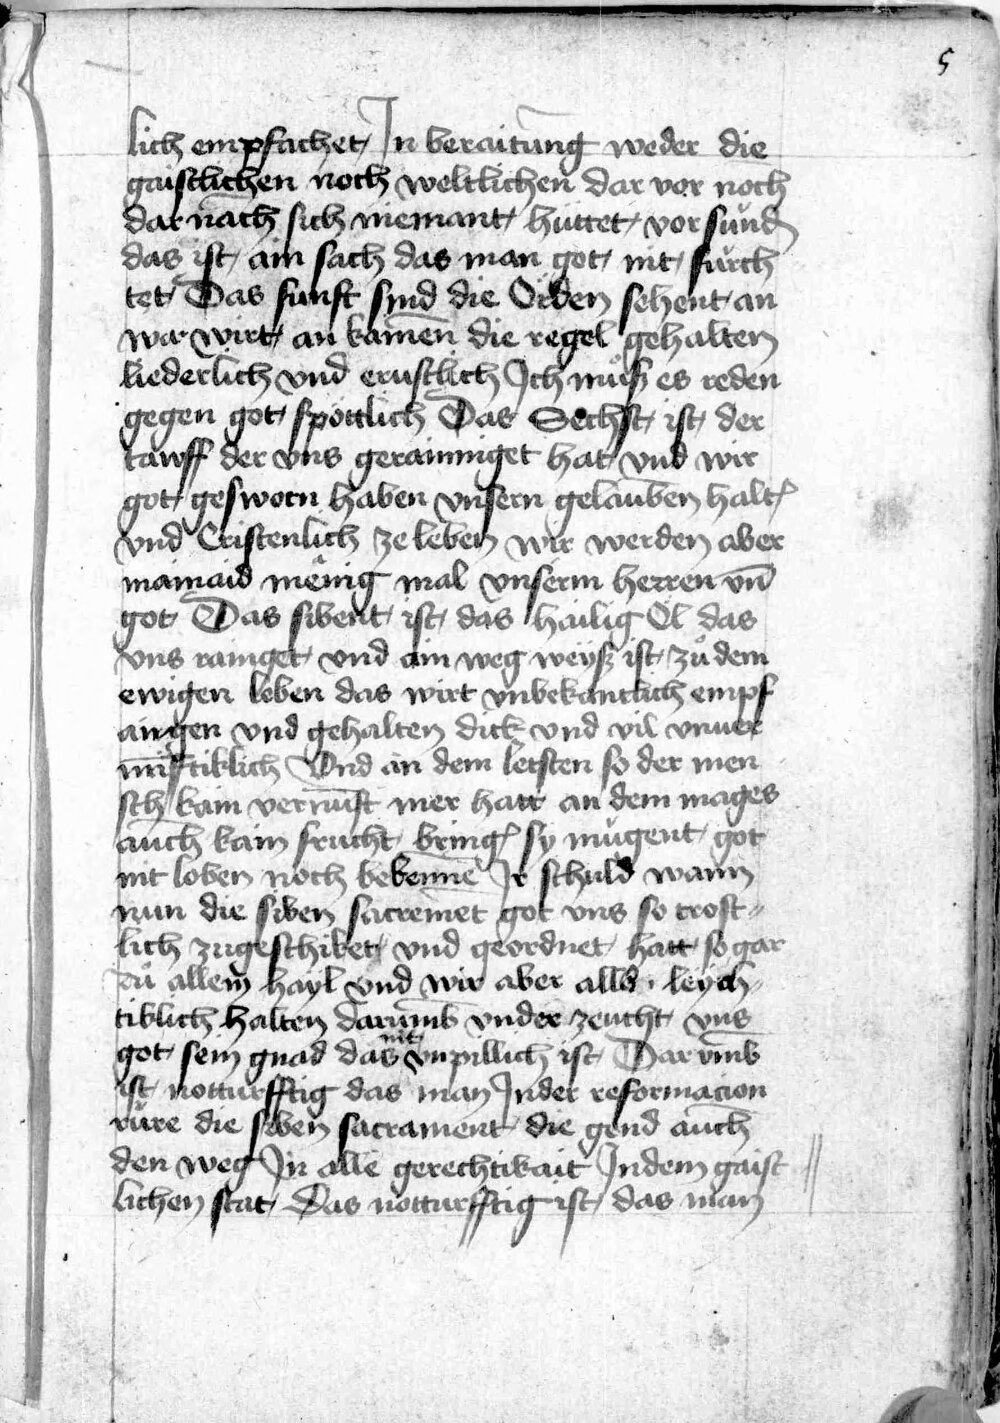 5
lich empfachet In beraitung weder die
gaistlichen noch weltlichen dar vor noch
dar nach sich niemant hüttet vor sünd
das ist ain sach das man got nit fürch
tet Das funft sind die Örden sehent an
wa wirt an kainen die regel gehalten
liederlich vnd ernstlich Ich muͦß es reden
gegen got spöttlich Das Sechst ist der
tawff der vns gerainniget hat vnd wir
got gesworn haben vnsern gelauben halt
vnd Cristenlich ze leben wir werden aber
mainaid menig mal vnserm herren vn̄
got Das sibent ist das hailig Öl das
vns rainiget vnd ain weg weyß ist zuͦ dem
ewigen leben das wirt vnbekantlich empf
angen vnd gehalten dick vnd vil vnuer
nu̅ftiklich Vnd an dem letsten so der men
sch kain vernunft mer hatt an dem mages
auch kain frucht bring sy mügent got
nit loben noch bekenne̅ Ir schuld wann
nun die siben sacrement got vns so trost-
lich zugeschiket vnd geordnet hatt so gar
zuͦ allem hayl vnd wir aber alls leych-
tiklich halten darumb vnder zeucht vns
got sein gnad das nit vnpillich ist Dar vmb
ist notturfftig das man In der reformacion
rüre die siben sacrament die gend auch
den weg In alle gerechtikait In dem gaist
lichen stat Das notturfftig ist das man